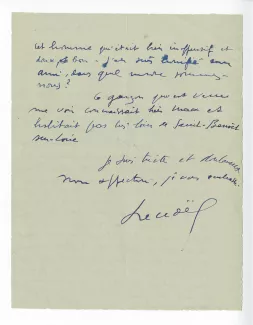 cet homme qui était bien inoffensif et
bon - j'en suis
ami, dans quel monde sommes-
nous ?
Ce garçon qui est venu
me voir connaissait bien et
habitait pas très loin de Saint-Benoît
sur-Loire
Je suis triste et
mon affection, je vous embrasse.